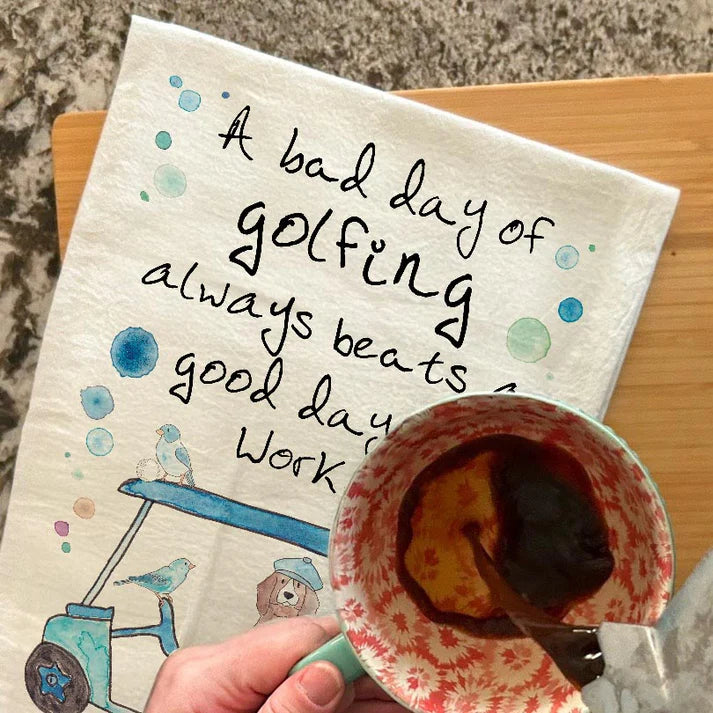 A bad day of
golfing
always beats
good day
Work